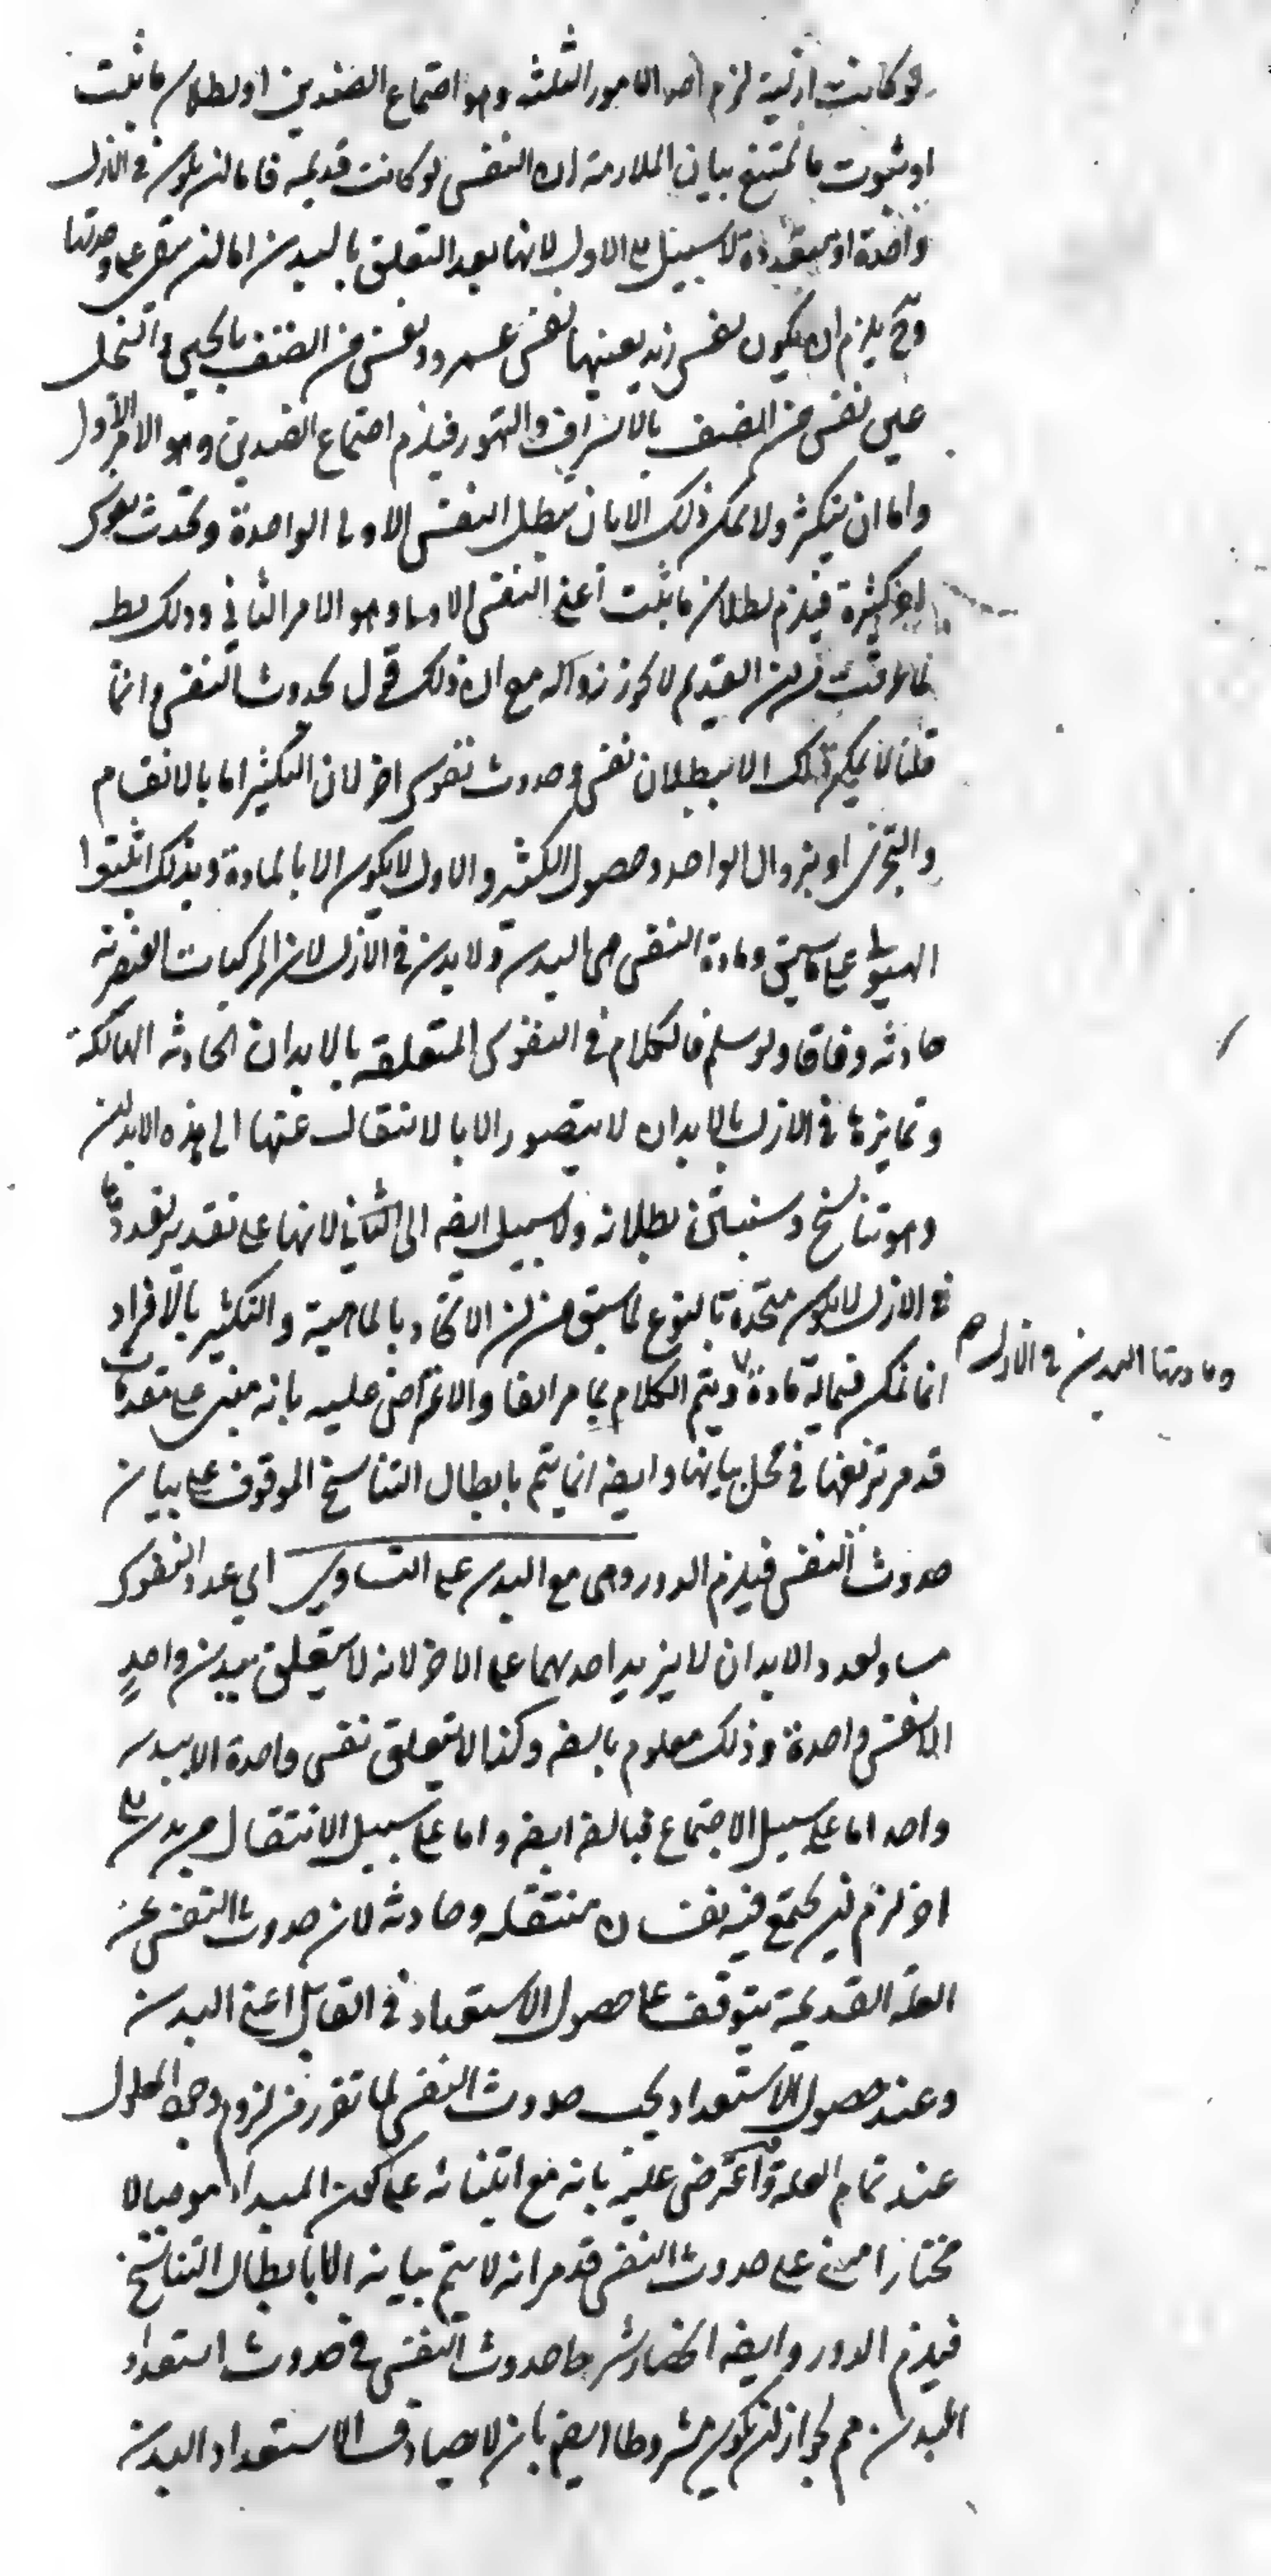 لو كانت ازلية لزم احد الامور الثلثة وهو اجتماع الضدين او بطلان ما ثبت
او ثبوت ما يمتنع بيان الملازمة ان النفس لو كانت قديمة فاما ان يكون في الازل
واحدة او متعددة لا سبيل الى الاول لانها بعد التعلق بالبدن اما ان يبقى على وحدتها
وح يلزم ان يكون نفس زيد بعينها نفس عمرو ونفس من اتصف بالجبن والبخل
عين نفس من اتصف بالاسراف والتهور فيلزم اجتماع الضدين وهو الامر الاول
واما ان يتكثر ولا يمكن ذلك الا بان يبطل النفس الاولى الواحدة وتحدث نفوس
اخر كثيرة فيلزم بطلان ما ثبت اعني النفس الاولى وهو الامر الثاني وذلك بط
لما عرفت من ان القديم لا يجوز زواله مع ان ذلك قول بحدوث النفس وانما
قلنا لا يمكن ذلك الا ببطلان نفس وحدوث نفوس اخر لان التكثير اما بالانقسام
والتجزى او بزوال الواحد وحصول الكثير والاول لا يكون الا بالمادة وبذلك اثبتوا
الهيولى على ما سبق ومادة النفس هي البدن ولا بدن في الازل لان المركبات العنصرية
حادثة وفاقا ولو سلم فالكلام في النفوس المتعلقة بالابدان الحادثة الهالكة
وتمايزها في الازل بالابدان لا يتصور الا بالانتقال عنها الى هذه الابدان
وهو تناسخ وسنبين بطلانه ولا سبيل ايضه الى الثاني لانها على تقدير تعددها
في الازل لا يكون متحدة بالنوع لما سبق من ان الاتحاد بالماهية والتكثير بالافراد
انما يمكن فيما له مادة ويتم الكلام بما مر انفا والاعتراض عليه بانه مبنى على مقدمات
ومادتها البدن في الازل صح
قد مر تزييفها في محل بيانها وايضه انما يتم بابطال التناسخ الموقوف على بيان
حدوث النفس فيلزم الدور وهي مع البدن على التساوي اي عدد النفوس
مساو لعدد الابدان لا يزيد احدهما على الاخر لانه لا يتعلق ببدن واحد
الا نفس واحدة وذلك معلوم بالضه وكذا لا يتعلق نفس واحدة الا ببدن
واحد اما على سبيل الاجتماع فبالضه ايضه واما على سبيل الانتقال من بدن الى
اخر لزم ان يجتمع فيه نفسان منتقلة وحادثة لان حدوث النفس عن
العلة القديمة يتوقف على حصول الاستعداد في القابل اعني البدن
وعند حصول الاستعداد يجب حدوث النفس لما تقرر من لزوم وجود المعلول
عند تمام العلة واعترض عليه بانه مع ابتنائه على كون المبدا موجبا لا
مختارا مبنى على حدوث النفس قد مر انه لا يتم بيانه الا بابطال التناسخ
فيلزم الدور وايضه انحصار شرط حدوث النفس في حدوث استعداد
البدن مم لجواز ان يكون مشروطا ايضه بان لا يصادف الاستعداد البدن